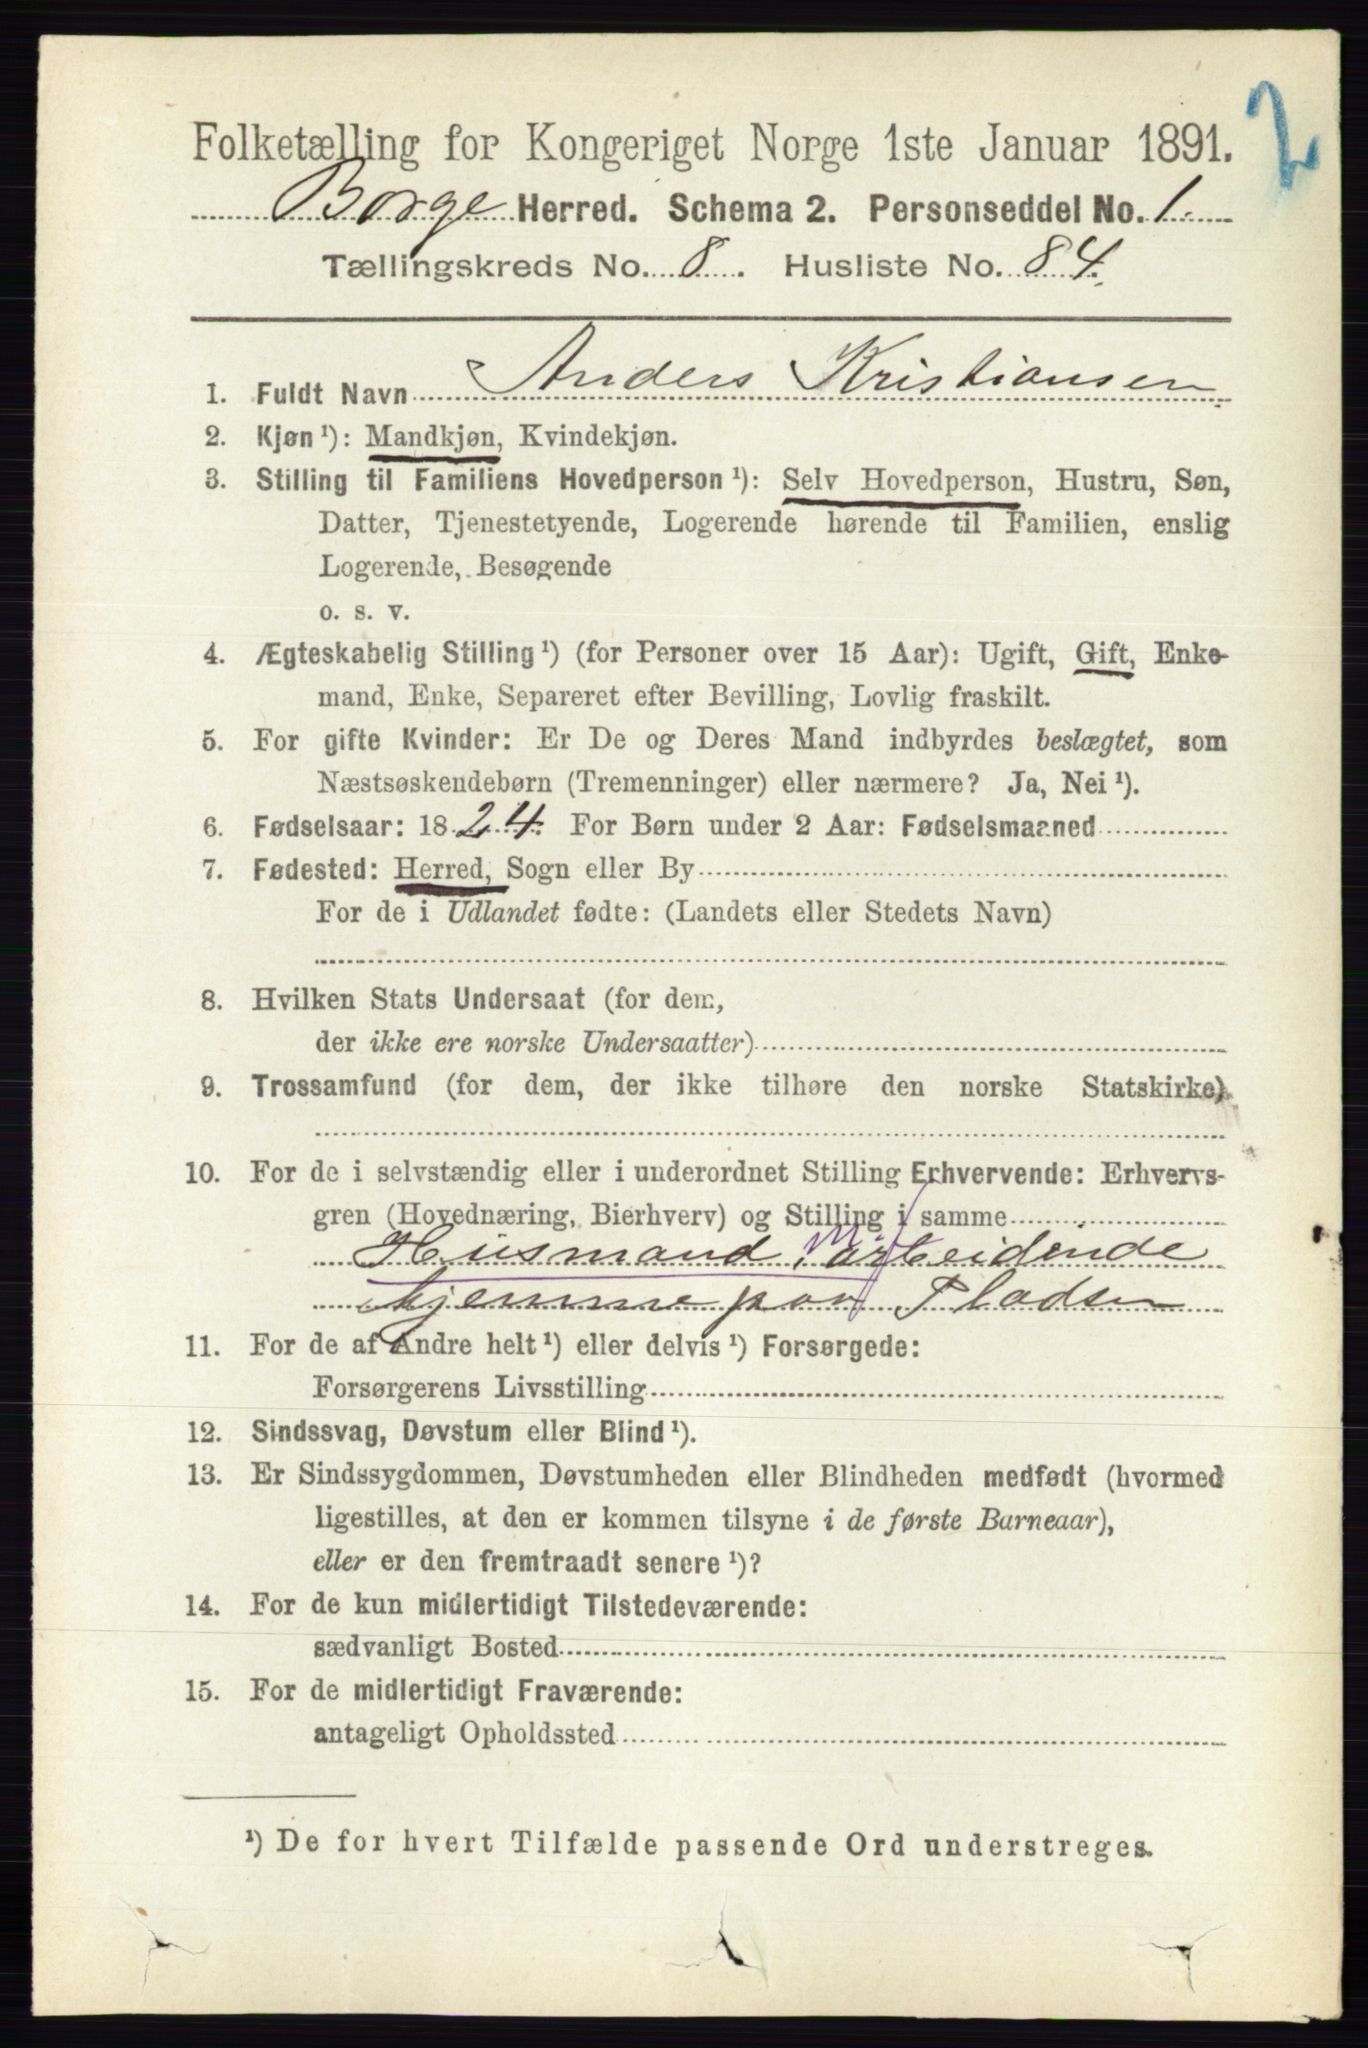 2
Folketælling for Kongeriget Norge 1ste Januar 1891.
Borge Herred. Schema 2. Personseddel No. 1.
Tællingskreds No. 8. Husliste No. 84.
1. Fuldt Navn Anders Kristiansen
2. Kjøn ¹): Mandkjøn, Kvindekjøn.
3. Stilling til Familiens Hovedperson ¹): Selv Hovedperson, Hustru, Søn,
Datter, Tjenestetyende, Logerende hørende til Familien, enslig
Logerende, Besøgende
o. s. v.
4. Ægteskabelig Stilling ¹) (for Personer over 15 Aar): Ugift, Gift, Enke-
mand, Enke, Separeret efter Bevilling, Lovlig fraskilt.
5. For gifte Kvinder: Er De og Deres Mand indbyrdes beslægtet, som
Næstsøskendebørn (Tremenninger) eller nærmere? Ja, Nei ¹).
6. Fødselsaar: 1824. For Børn under 2 Aar: Fødselsmaaned
7. Fødested: Herred, Sogn eller By
For de i Udlandet fødte: (Landets eller Stedets Navn)
8. Hvilken Stats Undersaat (for dem,
der ikke ere norske Undersaatter)
9. Trossamfund (for dem, der ikke tilhøre den norske Statskirke)
10. For de i selvstændig eller i underordnet Stilling Erhvervende: Erhvervs-
gren (Hovednæring, Bierhverv) og Stilling i samme
Husmand, m/ arbeidende
hjemme paa Pladsen
11. For de af Andre helt ¹) eller delvis ¹) Forsørgede:
Forsørgerens Livsstilling
12. Sindssvag, Døvstum eller Blind ¹).
13. Er Sindssygdommen, Døvstumheden eller Blindheden medfødt (hvormed
ligestilles, at den er kommen tilsyne i de første Barneaar),
eller er den fremtraadt senere ¹)?
14. For de kun midlertidigt Tilstedeværende:
sædvanligt Bosted
15. For de midlertidigt Fraværende:
antageligt Opholdssted
¹) De for hvert Tilfælde passende Ord understreges.